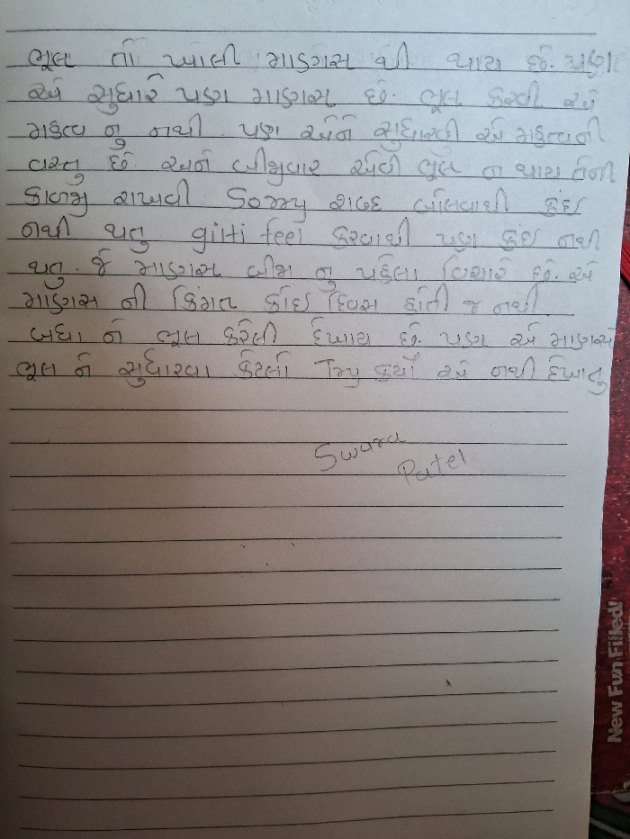 ભૂલ તો ખાલી માણસ થી થાય છે. પણ
એ સુધારે પણ માણસ છે. ભૂલ કરવી એ
મહત્વ નુ નથી. પણ એને સુધારવી એ મહત્વની
વસ્તુ છે. અને બીજીવાર એવી ભૂલ ન થાય તેની
કાળજી રાખવી. Sorry શબ્દ બોલવાથી કંઇ
નથી થતુ. gilti feel કરવાથી પણ કંઇ નથી
થતુ. જે માણસ બીજા નુ પહેલા વિચારે છે. એ
માણસ ની કિંમત કોઇ દિવસ હોતી જ નથી.
બધા ને ભૂલ કરેલી દેખાય છે. પણ એ માણસે
ભૂલ ને સુધારવા કેટલો Try કર્યો એ નથી દેખાતુ
Swara
Patel
New Fun Filled!